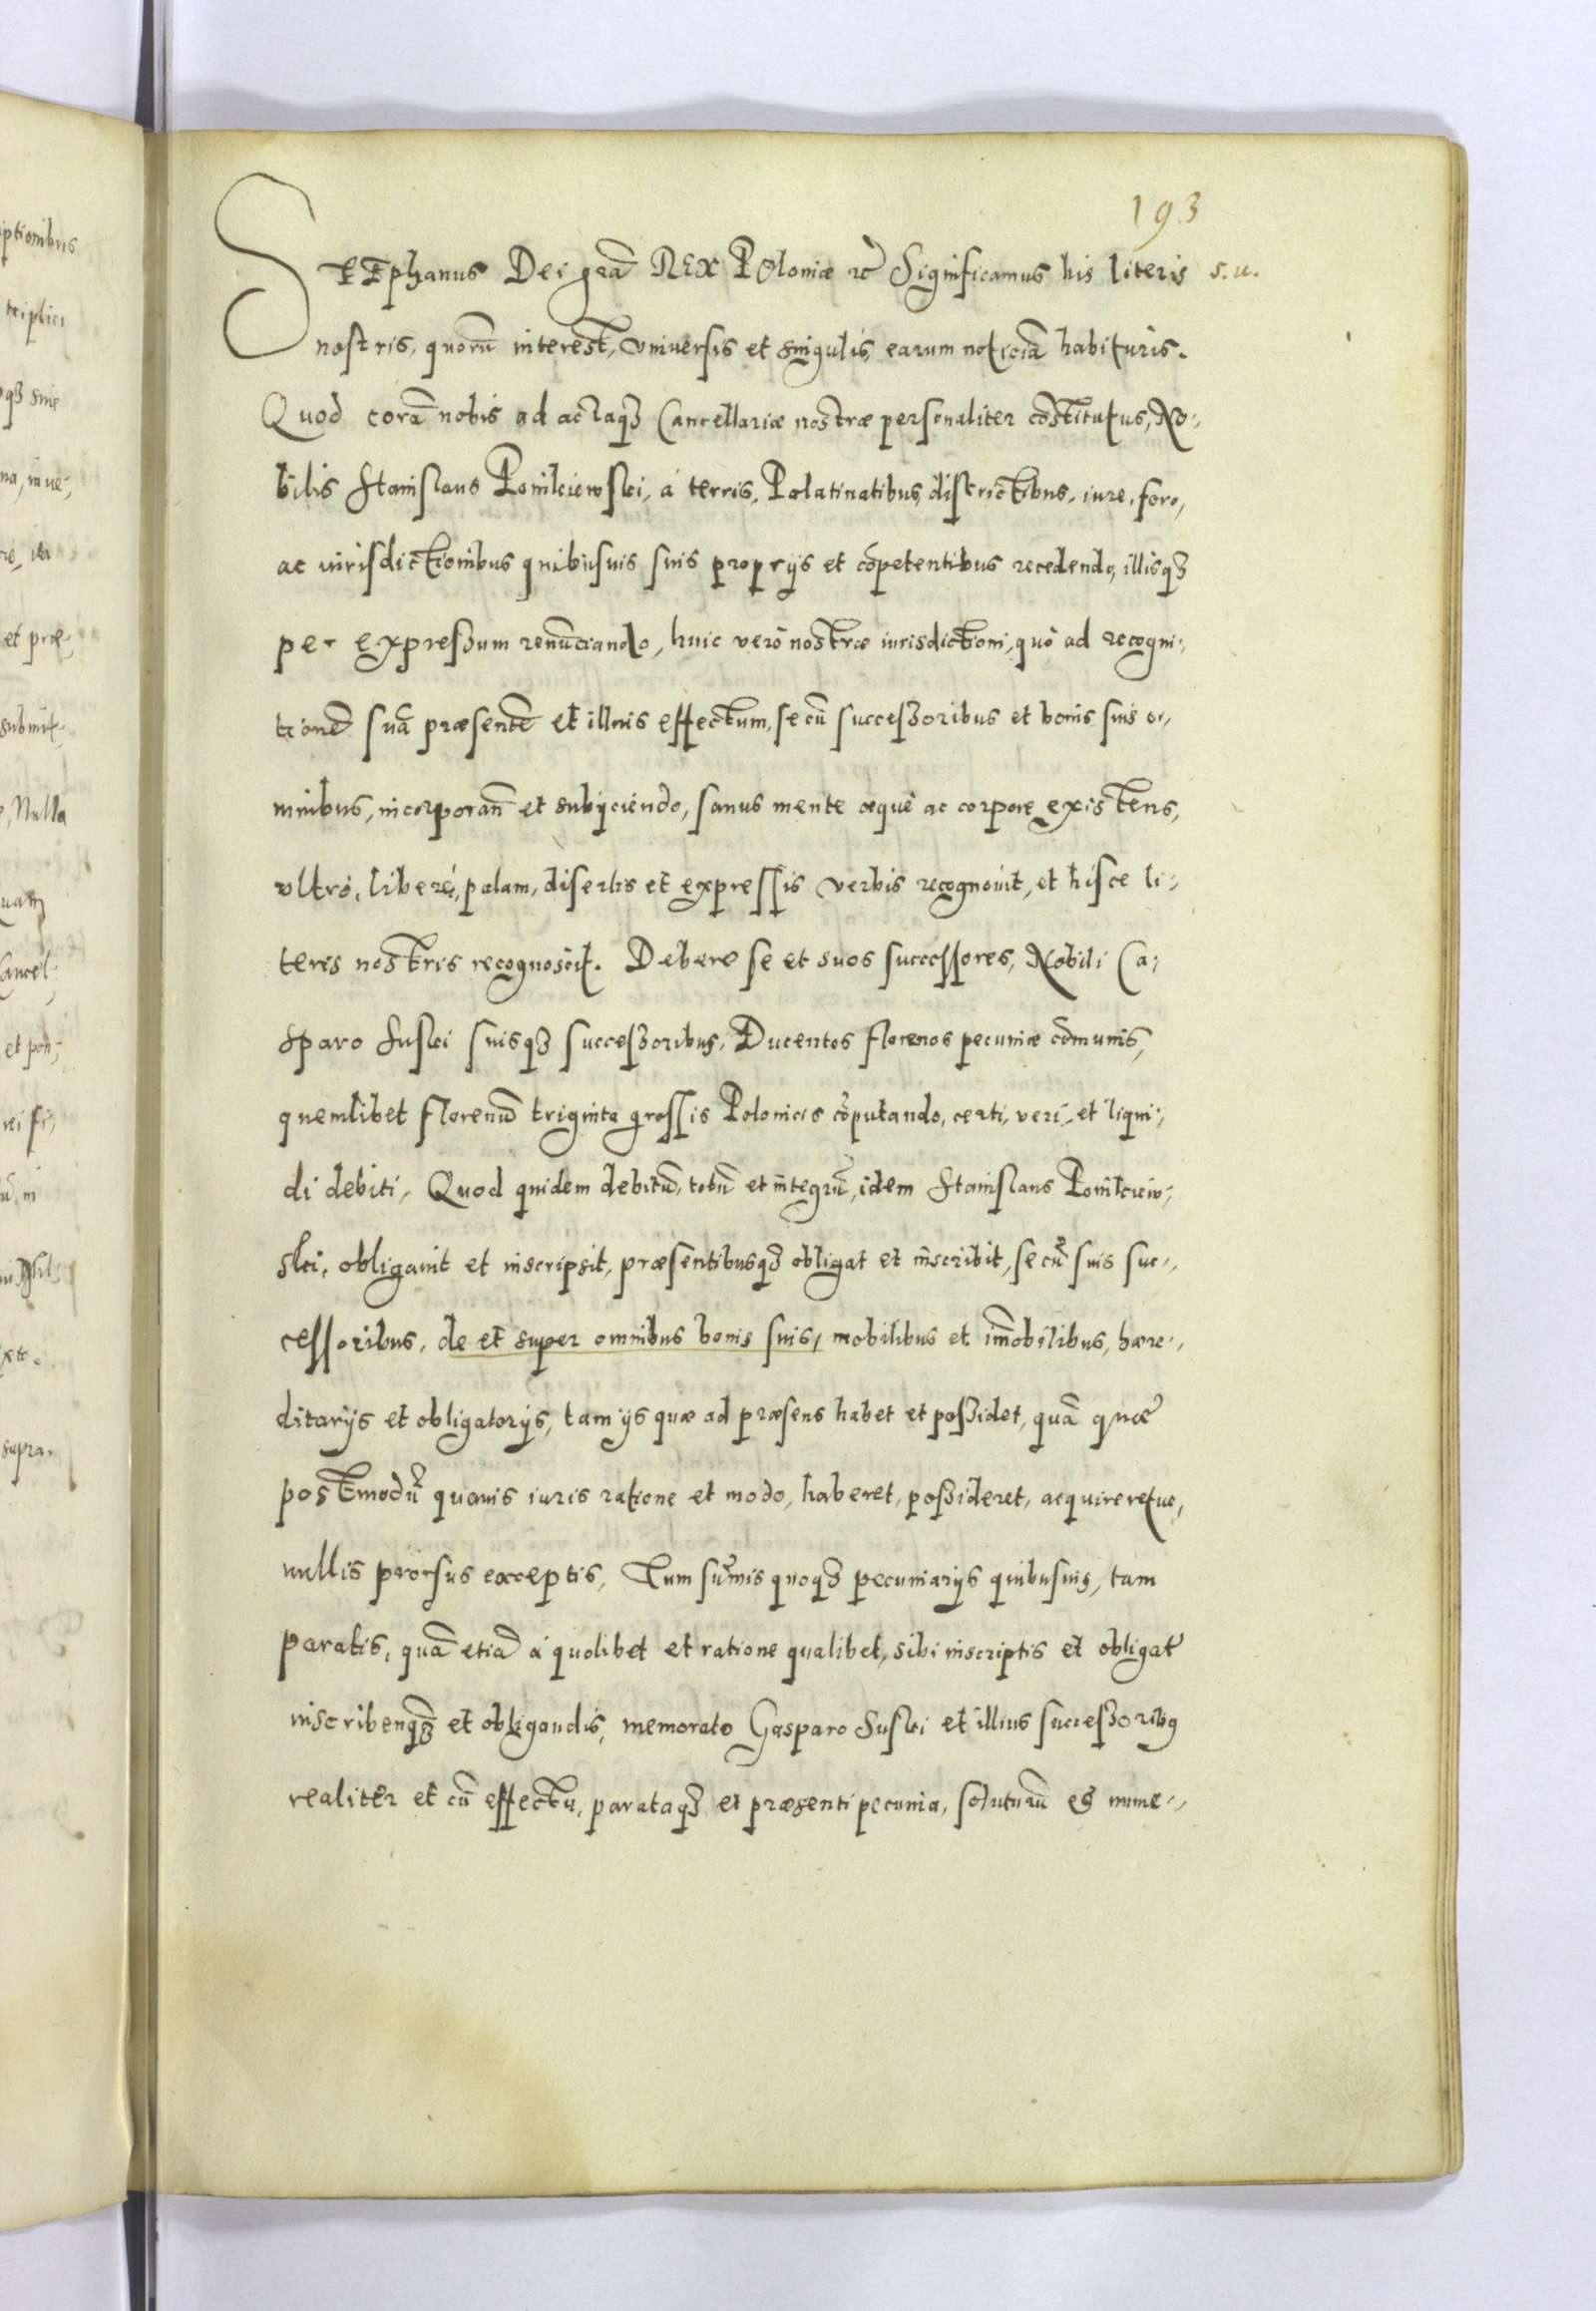 193
STEphanus Dei gr̃a REX Poloniæ ꝛc̃ Significamus his literis s.u.
nostris, quorũ interest, vniuersis et singulis, earum noticiã habituris.
Quod corã nobis ad actaqꝫ Cancellariæ nostræ personaliter cõstitutus, No-
bilis Stanislaus Poniłciewski, á terris, Palatinatibus, districtibus, iure, foro,
ac iurisdictionibus quibusuis suis proprijs et cõpetentibus recedendo, illisqꝫ
per expressum renũciando, huic verò nostræ iurisdictioni, quò ad recogni-
tionẽ suã præsentẽ et illius effectum, se cũ successoribus et bonis suis o-
mnibus, incorporañ et subijciendo, sanus mente æquè ac corpore existens,
vltró, liberè, palam, disertis et expressis verbis recognouit, et hisce li-
teris nostris recognoscit. Debere se et suos successores, Nobili Ca-
sparo Suski suisqꝫ successoribus, Ducentos florenos pecuniæ cõmunis,
quemlibet florenũ triginta grossis Polonicis cõputando, certi, veri, et liqui-
di debiti, Quod quidem debitũ, totũ et integrũ, idem Stanislaus Poniłciew-
ski, obligauit et inscripsit, præsentibusqꝫ obligat et inscribit, se cũ suis suc-
cessoribus, de et super omnibus bonis suis, mobilibus et im̃obilibus, hære-
ditarijs et obligatorijs, tam ijs quæ ad præsens habet et possidet, quã quæ
postmodũ quouis iuris ratione et modo, haberet, possideret, acquireretue,
nullis prorsus exceptis, Tum sum̃is quoqꝫ pecuniarijs quibusuis, tam
paratis, quã etiã à quolibet et ratione qualibet, sibi inscriptis et obligat̃
inscribenqꝫ et obligandis, memorato Gasparo Suski et illius successoribꝰ
realiter et cũ effectu, parataqꝫ et præsenti pecunia, soluturũ eß nume-